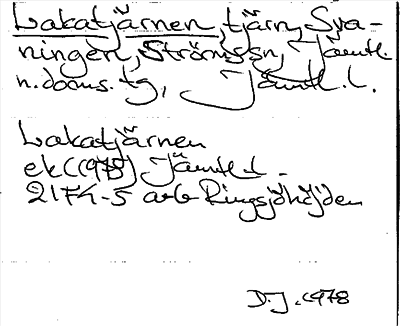 Lakatjärnen, tjärn, Sva-
ningen, Ströms sn, Jämtl.
n. doms. tg, Jämtl. l.
Lakatjärnen
ek (1978) Jämtl. l.
21F4-5 a-b Ringsjöhöjden
D.J. 1978